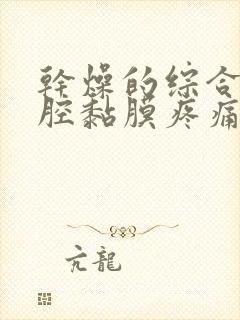 幹燥的综合
腔黏膜疼痛
亢龍